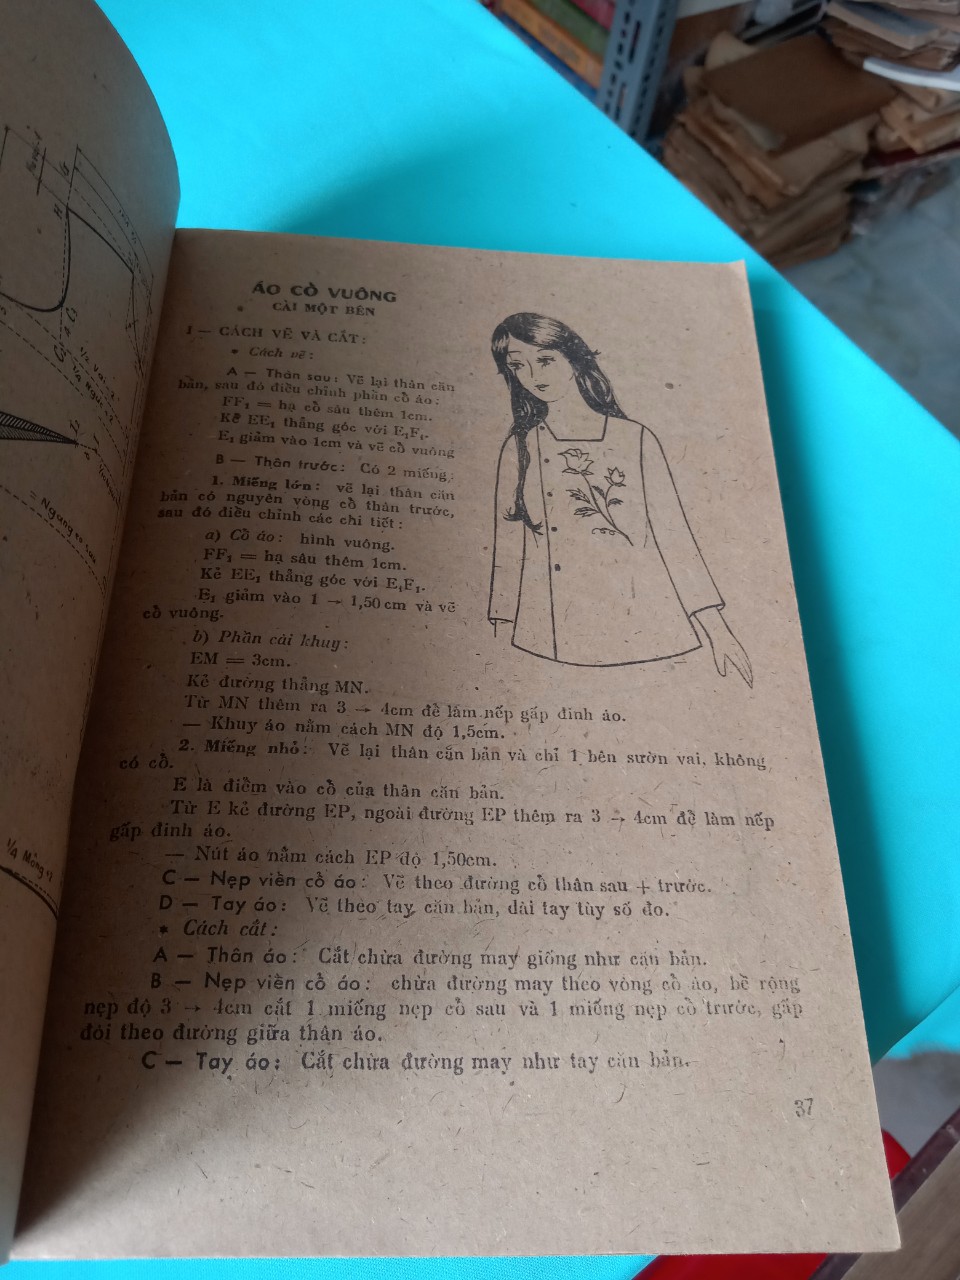 ÁO CỔ VUÔNG
CÀI MỘT BÊN
I — CÁCH VẼ VÀ CẮT:
* Cách vẽ:
A — Thân sau: Vẽ lại thân căn
bản, sau đó điều chỉnh phần cổ áo:
FF₁ = hạ cổ sâu thêm 1cm.
Kẻ EE₁ thẳng góc với E₁F₁.
E₁ giảm vào 1cm và vẽ cổ vuông
B — Thân trước: Có 2 miếng:
1. Miếng lớn: vẽ lại thân căn
bản có nguyên vòng cổ thân trước,
sau đó điều chỉnh các chi tiết:
a) Cổ áo: hình vuông.
FF₁ = hạ sâu thêm 1cm.
Kẻ EE₁ thẳng góc với E₁F₁.
E₁ giảm vào 1 → 1,50cm và vẽ
cổ vuông.
b) Phần cài khuy:
EM = 3cm.
Kẻ đường thẳng MN.
Từ MN thêm ra 3 → 4cm để làm nếp gấp đinh áo.
— Khuy áo nằm cách MN độ 1,5cm.
2. Miếng nhỏ: Vẽ lại thân căn bản và chỉ 1 bên sườn vai, không
có cổ.
E là điểm vào cổ của thân căn bản.
Từ E kẻ đường EP, ngoài đường EP thêm ra 3 → 4cm để làm nếp
gấp đinh áo.
— Nút áo nằm cách EP độ 1,50cm.
C — Nẹp viền cổ áo: Vẽ theo đường cổ thân sau + trước.
D — Tay áo: Vẽ theo tay căn bản, dài tay tùy số đo.
* Cách cắt:
A — Thân áo: Cắt chừa đường may giống như căn bản.
B — Nẹp viền cổ áo: chừa đường may theo vòng cổ áo, bề rộng
nẹp độ 3 → 4cm cắt 1 miếng nẹp cổ sau và 1 miếng nẹp cổ trước, gấp
đôi theo đường giữa thân áo.
C — Tay áo: Cắt chừa đường may như tay căn bản.
37
1/2 Vai
1/4 Ngực +2
= Ngang eo sau
1/4 Mông +2